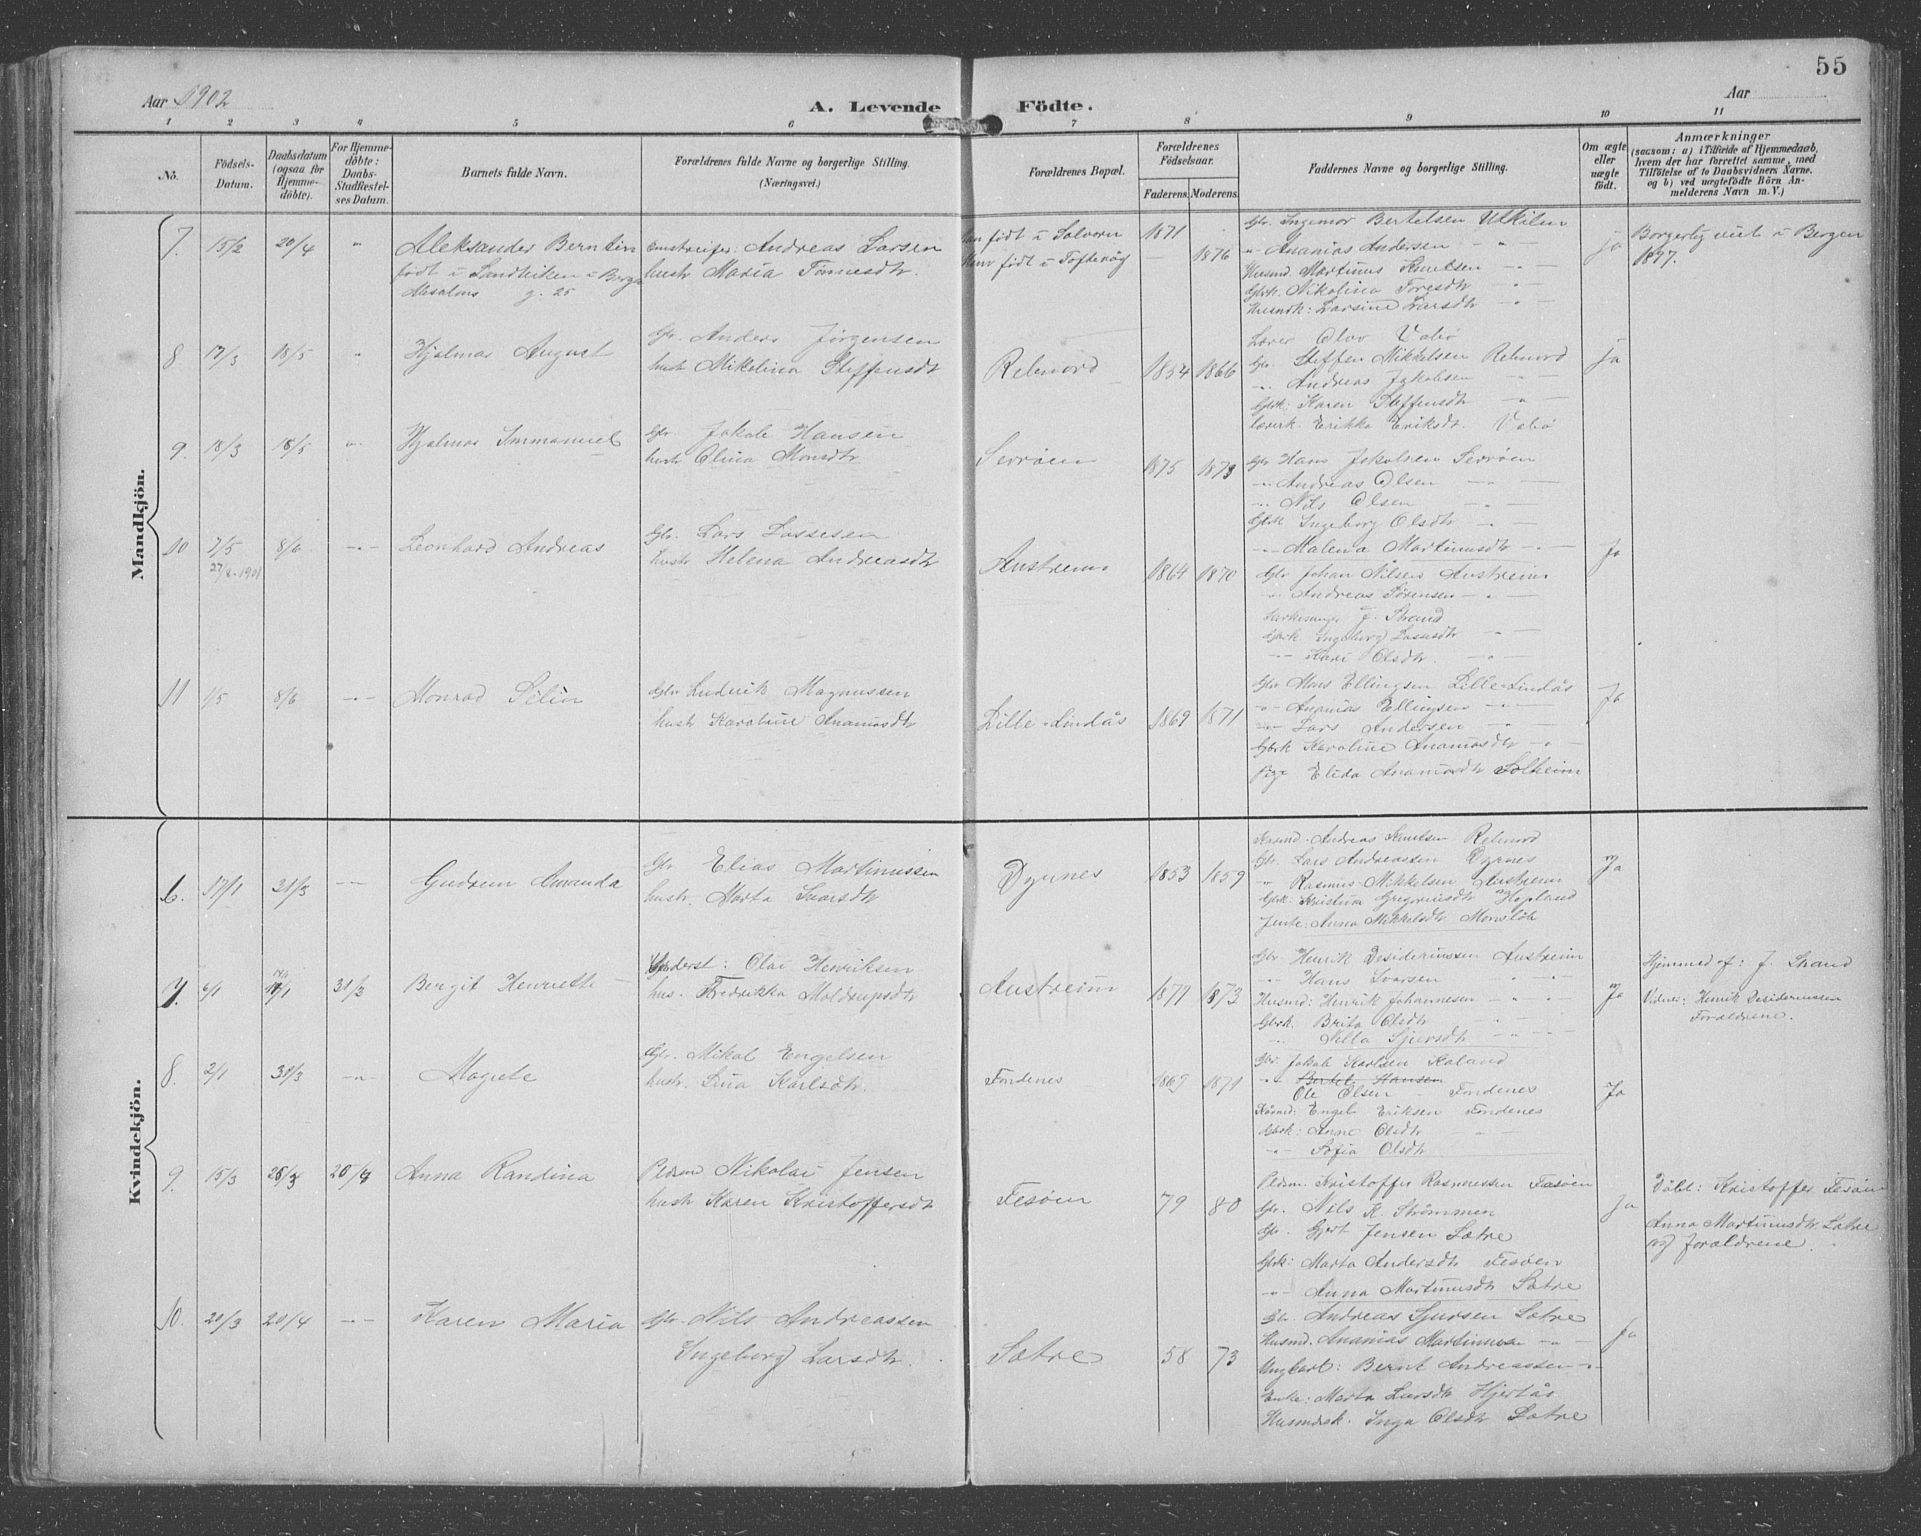 55
Aar 1902
A. Levende Födte.
Aar
1 2 3 4 5 6 7 8 9 10 11
No.
Födsels-Datum.
Daabsdatum (ogsaa for Hjemmedöbte).
For Hjemmedöbte: Daabs-Stadfæstelses Datum.
Barnets fulde Navn.
Forældrenes fulde Navne og borgerlige Stilling.
(Næringsvei.)
Forældrenes Bopæl.
Forældrenes Födselsaar.
Faderens. Moderens.
Faddernes Navne og borgerlige Stilling.
Om ægte eller uægte födt.
Anmærkninger
(saasom: a) i Tilfælde af Hjemmedaab, hvem der har forrettet samme, med Tilföielse af to Daabsvidners Navne, og b) ved uægtefödte Börn Anmelderens Navn m. V.)
Mandkjön.
7. 15/2 20/4 " Aleksander Berntin
født i Sandviken i Bergen
g. 25
Andreas Larsen
hustr Maria Tønnesdtr.
født i Solvorn
født i Toftevåg
1871 1876
Gbr. Ingemor Bertelsen Utkilen
" Ananias Andersen " —
Husmd. Martinus Knutsen " —
Gbrk. Nikolina " —
Husmk: Larsine Larsdtr " —
ja
Borgerlig viet i Bergen
1897.
8 17/3 18/5 " Hjalmar August
Gbr. Anders Jørgensen
hustr Mikelina Steffensdtr
Relnord 1854 1866
Lærer Olav Vabø
Gbr. Steffen Mikkelsen Relnord
" Andreas Jakobsen " —
Gbrk: Karen Steffensdtr — " —
Lærerk. Erikka Eriksdt. Vabø
ja
9. 18/3 18/5 " Hjalmar Immanuel
Gbr. Jakob Hansen
hustr Olina Monsdtr
Sevrøen 1875 1873
Gbr Hans Jakobsen Sevrøen
" Andreas Olsen — " —
" Nils Olsen — " —
Gbrk Ingeborg Olsdtr — " —
" Malena Martinusdtr — " —
10 7/5 8/6 — " — Leonhard Andreas
27/8-1901
Gbr. Lars Lassesen
hustr Helena Andreasdtr
Austreim 1864 1870
Ja
Gbr Johan Nilsen Austreim
" Andreas Sørensen — " —
Kirkesanger J. Strand
Gbrk. Ingeborg Lassesdtr — " —
" Kari Olsdtr. — " —
11 1/5 8/6 — " — Monrad Selin
Gbr Ludvik Magnussen
hustr Karoline Ananiasdtr
Lille-Lindås 1869 1871
Gbr Mons Ellingsen Lille-Lindås
" Ananias Ellingsen — " —
" Lars Andersen — " —
Gbrk Karoline Ananiasdtr — " —
Pige Elida Ananiasdtr Solheim
Ja
Kvindekjön.
6. 17/1 31/3 — " — Gudrun Amanda
Gbr Elias Martinussen
hustr. Marta Ivarsdtr
Dyrnes 1853 1859
Andreas Knutsen Relnord
Gbr. Lars Andreassen Dyrnes
" Rasmus Mikkelsen Austreim
Gbrk: Kristina Gregoriusdtr Hopland
Jente: Anna Mikkelsdtr Monslot
Ja
7. 6/1 31/3 Bergit Henriette
Olai Henriksen
hus. Fredrikka Moldrupsdtr
Austreim 1877 1873
Gbr. Henrik Desideriussen Austreim
" Hans Ivarsen " —
Husmd: Henrik Johannesen — " —
Gbrk. Brita Olsdtr — " —
" Nilla Sjursdtr — " —
Ja
Hjemmed. af: J. Strand
Vidner: Henrik Desideriussen
Forældrene.
8. 2/1 31/3 — " — Magrete
Gbr. Mikal Engelsen
hustr. Lina Karlsdtr.
Fondenes 1869 1871
Gbr. Jakob Karlsen Kaland
" Bertel Hansen
Ole Olsen Fondenes
Kårmd: Engel Eriksen Fondenes
Gbrk: Anne Olsdtr — " —
" Sofia Olsdtr
Ja
9. 15/3 20/4 Anna Randina
Pldsm Nikolai Jensen
hustr Karen Kristoffersdtr
Fesøen 79 80
Pldsm. Kristoffer Rasmussen Fesøen
Gbr. Nils K Strømmen
Gbr. Gjert Jensen Sætre
Gbrk: Marta Andersdtr Fesøen
" Anna Martinusdtr Sætre
Ja
Døbt: Kristoffer Fesøen
Anna Martinusdtr. Sætre
og forældrene.
10. 20/3 20/4 — " — Karen Maria
Gbr. Nils Andreassen
Ingeborg Larsdtr.
Sætre 58 73
Gbr. Andreas Gjursen Sætre
Husmd. Ananias Martinussen — " —
Ungkarl: Bernt Andreassen — " —
Enke: Marta Larsdtr Hjertås
Husmdsk. Inga Olsdtr Sætre
Ja